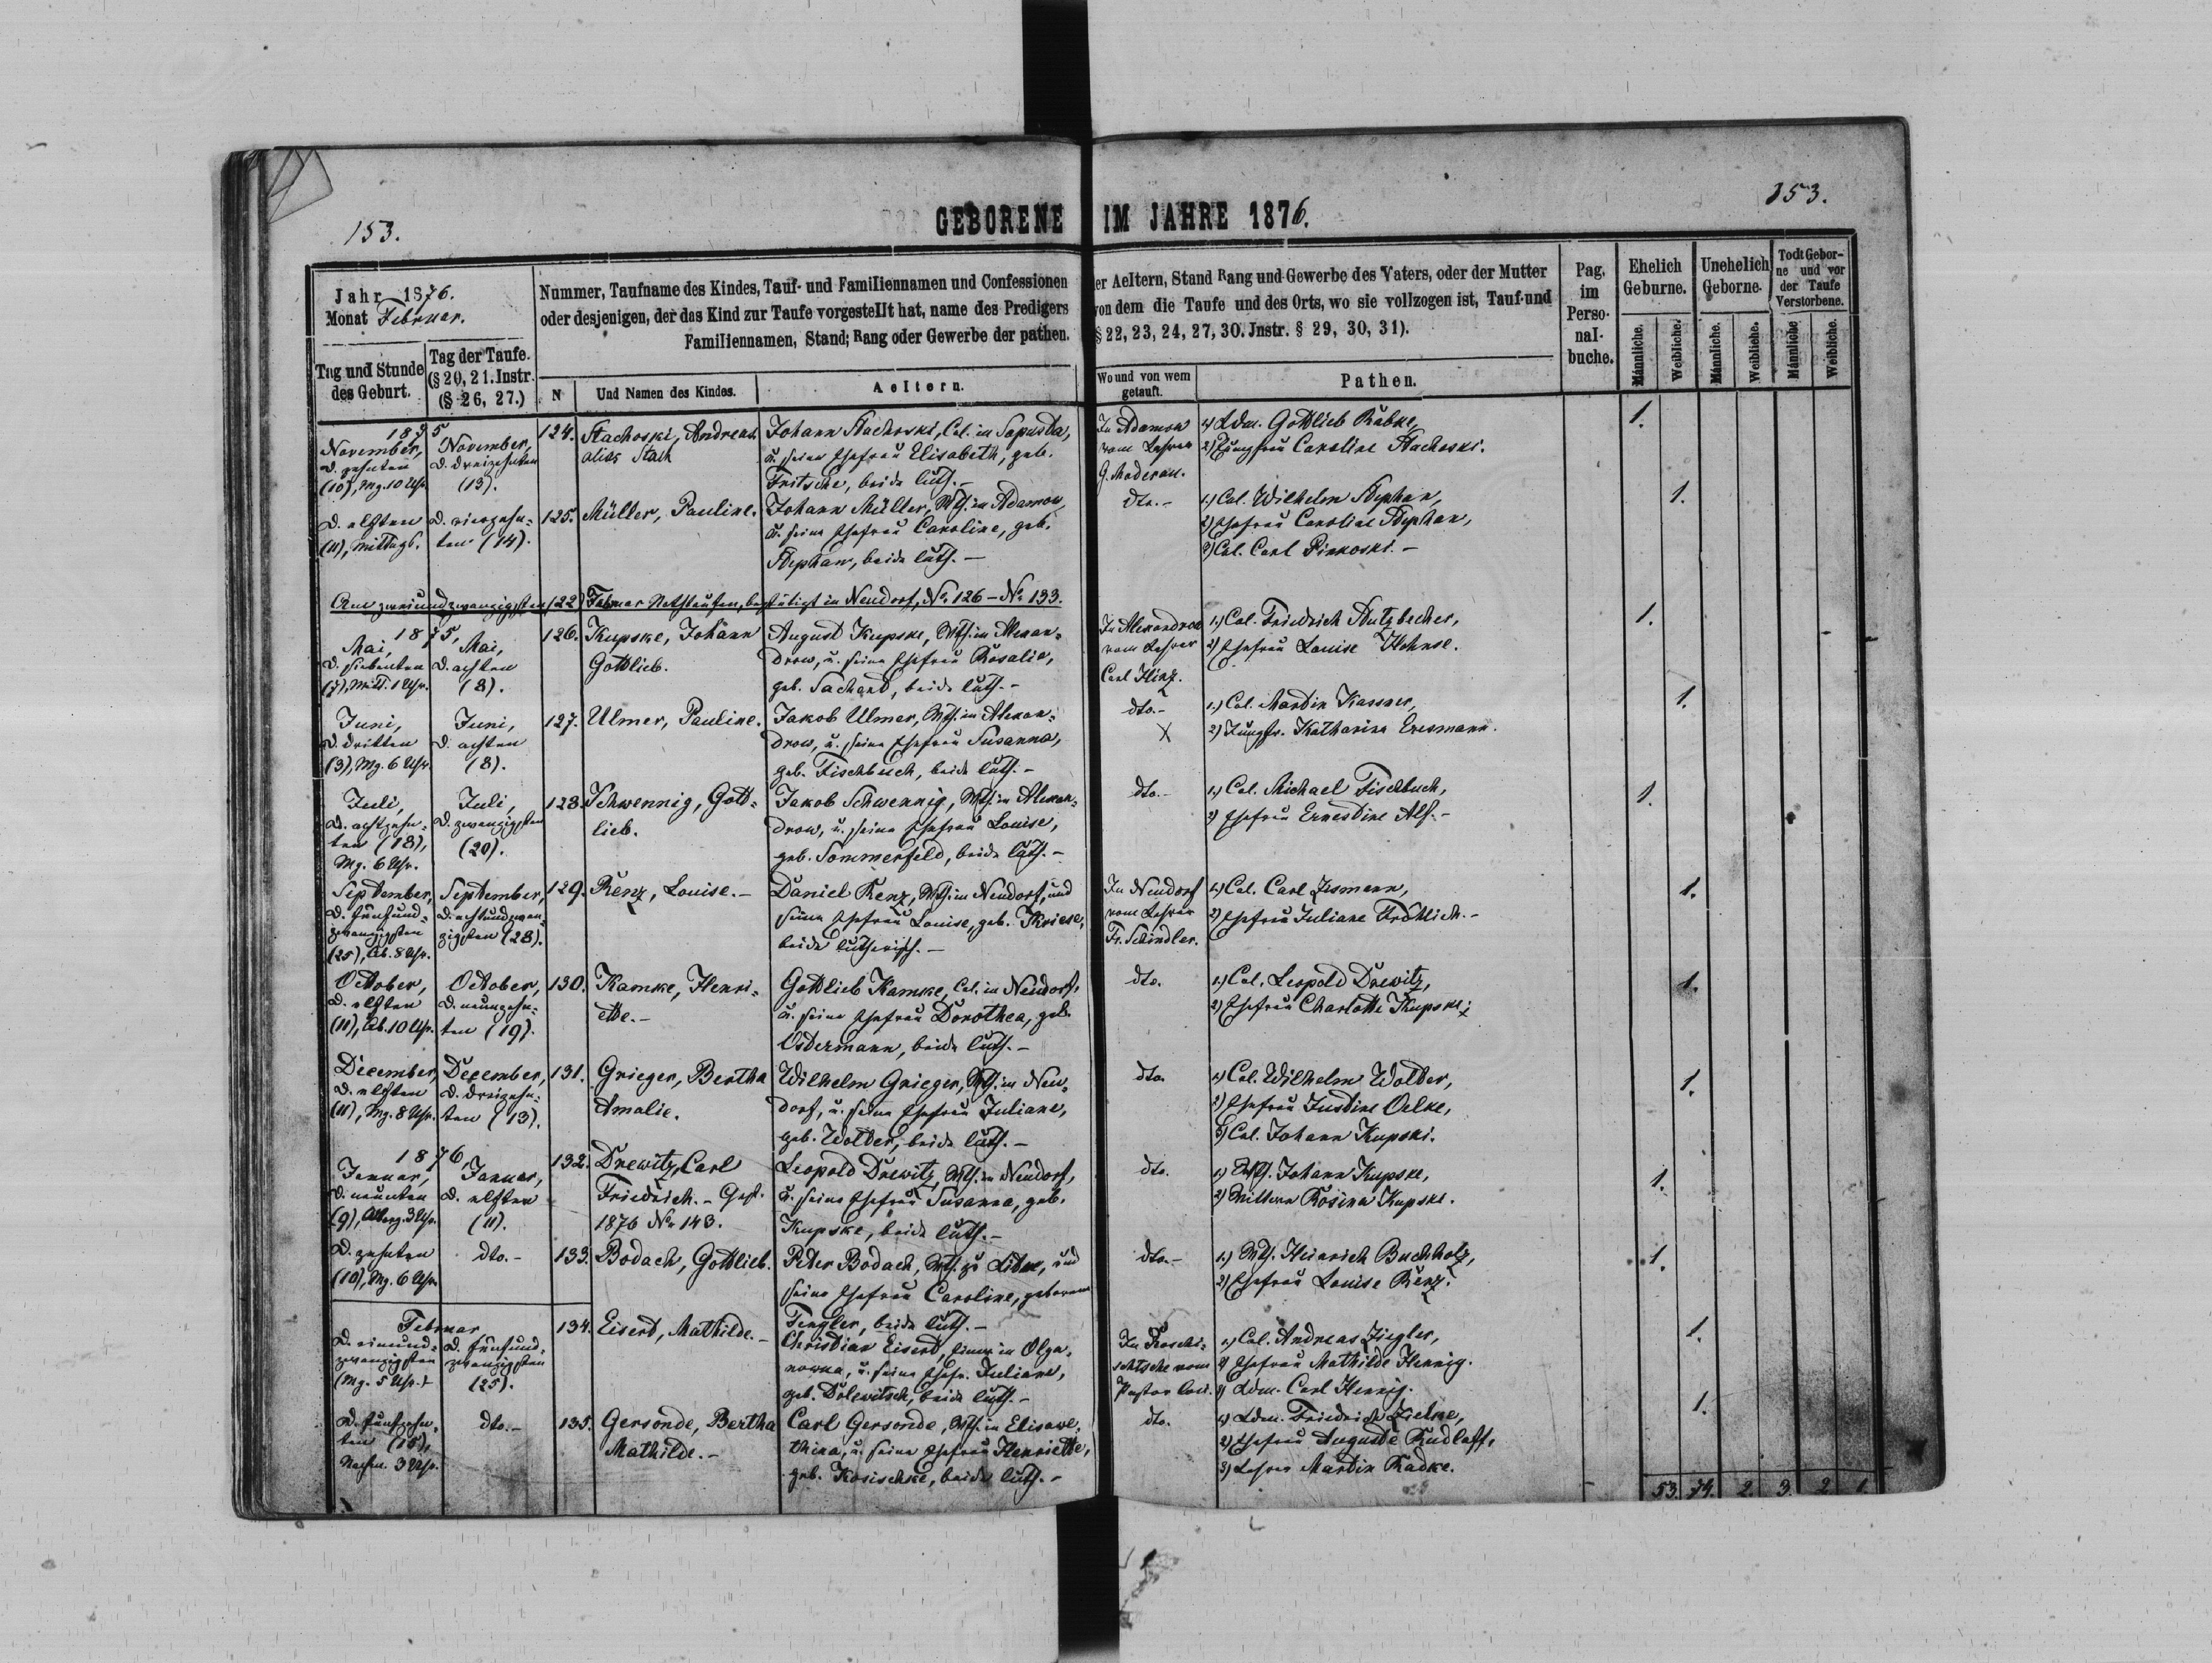 153.
GEBORENE IM JAHRE 1876.
153.
Jahr 1876.
Monat Februar.
Nummer, Taufname des Kindes, Tauf- und Familiennamen und Confessionen
oder desjenigen, der das Kind zur Taufe vorgestellt hat, name des Predigers
Familiennamen, Stand; Rang oder Gewerbe der pathen.
er Aeltern, Stand Rang und Gewerbe des Vaters, oder der Mutter
von dem die Taufe und des Orts, wo sie vollzogen ist, Tauf-und
§ 22, 23, 24, 27, 30. Jnstr. § 29, 30, 31).
Pag. im Perso-nal-buche.
Ehelich Geburne.
Unehelich Geborne.
Todt Gebor-ne und vor der Taufe Verstorbene.
Männliche. Weibliche. Männliche. Weibliche. Männliche Weibliche.
Tag und Stunde des Geburt.
Tag der Taufe. (§ 20, 21. Instr. (§ 26, 27.)
N
Und Namen des Kindes.
Aeltern.
Wo und von wem getauft.
Pathen.
1875
November, D. zehnten (10), Mg. 10 Uhr
November, D. dreizehnten (13).
124. Stachoski, Andreas alias Stach
Johann Stachoski, Col. in Sapusta,
u. seine Ehefrau Elisabeth, geb.
Fritsche, beide luth.-
In Adamow vom Lehrer G. Maderau.
1) Ldm. Gottlieb Rabke,
2) Jungfrau Caroline Stachoski.
1.
D. elften (11), Mittags.
D. vierzehn-ten (14).
125. Müller, Pauline.
Johann Müller, Wth. in Adamow
u. seine Ehefrau Caroline, geb.
Stephan, beide luth. -
dto. -
1.) Col. Wilhelm Stephan,
2) Ehefrau Caroline Stephan,
3) Col. Carl Pinkoski. -
1.
Am zweiundzwanzigsten (22) Februar Nothtaufen, bestätigt in Neudorf, No. 126 - No. 133.
1875,
Mai, D. siebenten (7), Mitt. 1 Uhr.
Mai, D. achten (8).
126. Kupske, Johann Gottlieb.
August Kupske, Wth. in Alexan-
drow, u. seine Ehefrau Rosalie,
geb. Sachard, beide luth. -
In Alexandrow vom Lehrer Carl Hinz.
1.) Col. Friedrich Stutzbecher,
2) Ehefrau Louise Hohnse.
1.
Juni, D. dritten (3), Mg. 6 Uhr.
Juni, D. achten (8).
127. Ulmer, Pauline.
Jakob Ulmer, Wth. in Alexan-
drow, u. seine Ehefrau Susanna,
geb. Fischbuch, beide luth. -
dto. -
X
1.) Col. Martin Kassner,
2) Jungfr. Katharina Eresmann.
1.
Juli, D. achtzehn-ten (18), Mg. 6 Uhr.
Juli, D. zwanzigsten (20).
128. Schwennig, Gott-lieb.
Jakob Schwennig, Wth. in Alexan-
drow, u. seine Ehefrau Louise,
geb. Sommerfeld, beide luth. -
dto. -
1.) Col. Michael Fischbuch,
2) Ehefrau Ernestine Alf. -
1.
September, D. fünfund-zwanzigsten (25), Ab. 8 Uhr.
September, D. achtundzwan-zigsten (28).
129. Renz, Louise. -
Daniel Renz, Wth. in Neudorf, und
seine Ehefrau Louise, geb. Kriese,
beide lutherisch. -
In Neudorf vom Lehrer Fr. Schindler.
1.) Col. Carl Jesmann,
2) Ehefrau Juliane Fröhlich. -
1.
October, D. elften (11), Ab. 10 Uhr.
October, D. neunzehn-ten (19).
130. Kamke, Henri-ette. -
Gottlieb Kamke, Col. in Neudorf,
u. seine Ehefrau Dorothea, geb.
Ostermann, beide luth. -
dto.
1.) Col. Leopold Drewitz,
2) Ehefrau Charlotte Kupski.
1.
December, D. elften (11), Mg. 8 Uhr.
December, D. dreizehn-ten (13).
131. Grieger, Bertha Amalie.
Wilhelm Grieger, Wth. in Neu-
dorf, u. seine Ehefrau Juliane,
geb. Wolter, beide luth. -
dto.
1.) Col. Wilhelm Wolter,
2) Ehefrau Justine Oelke,
3) Col. Johann Kupski.
1.
1876,
Januar, D. neunten (9), 3 Uhr.
Januar, D. elften (11).
132. Drewitz, Carl Friedrich. - Gest. 1876 No. 143.
Leopold Drewitz, Wth. in Neudorf,
u. seine Ehefrau Susanna, geb.
Kupske, beide luth. -
dto.
1.) Wth. Johann Kupske,
2) Wittwe Rosina Kupske.
1.
D. zehnten (10), Mg. 6 Uhr.
dto. -
133. Bodach, Gottlieb.
Peter Bodach, Wth. zu Lidae, und
seine Ehefrau Caroline, geborene
Tengler, beide luth. -
dto. -
1.) Wth. Heinrich Buchholz,
2) Ehefrau Louise Renz.
1.
Februar
D. einund-zwanzigsten (Mg. 5 Uhr.)
D. fünfund-zwanzigsten (25).
134. Eisert, Mathilde. -
Christian Eisert, in Olga-
nowna, u. seine Ehefr. Juliane,
geb. Dolewitsch, beide luth. -
In Roschi-schtsche vom Pastor loci.
1.) Col. Andreas Ziegler,
2) Ehefrau Mathilde Hennig.
3) Ldm. Carl Hennig.
1.
D. fünfzehn-ten (15), Nachm. 3 Uhr.
dto. -
135. Gersonde, Bertha Mathilde. -
Carl Gersonde, Wth. in Elisawe-
thina, u. seine Ehefrau Henriette,
geb. Kosischke, beide luth. -
dto.
1) Ldm. Friedrich Zielke,
2) Ehefrau Auguste Rudloff,
3) Lehrer Martin Radke.
1.
53. 74. 2. 3. 2 1.